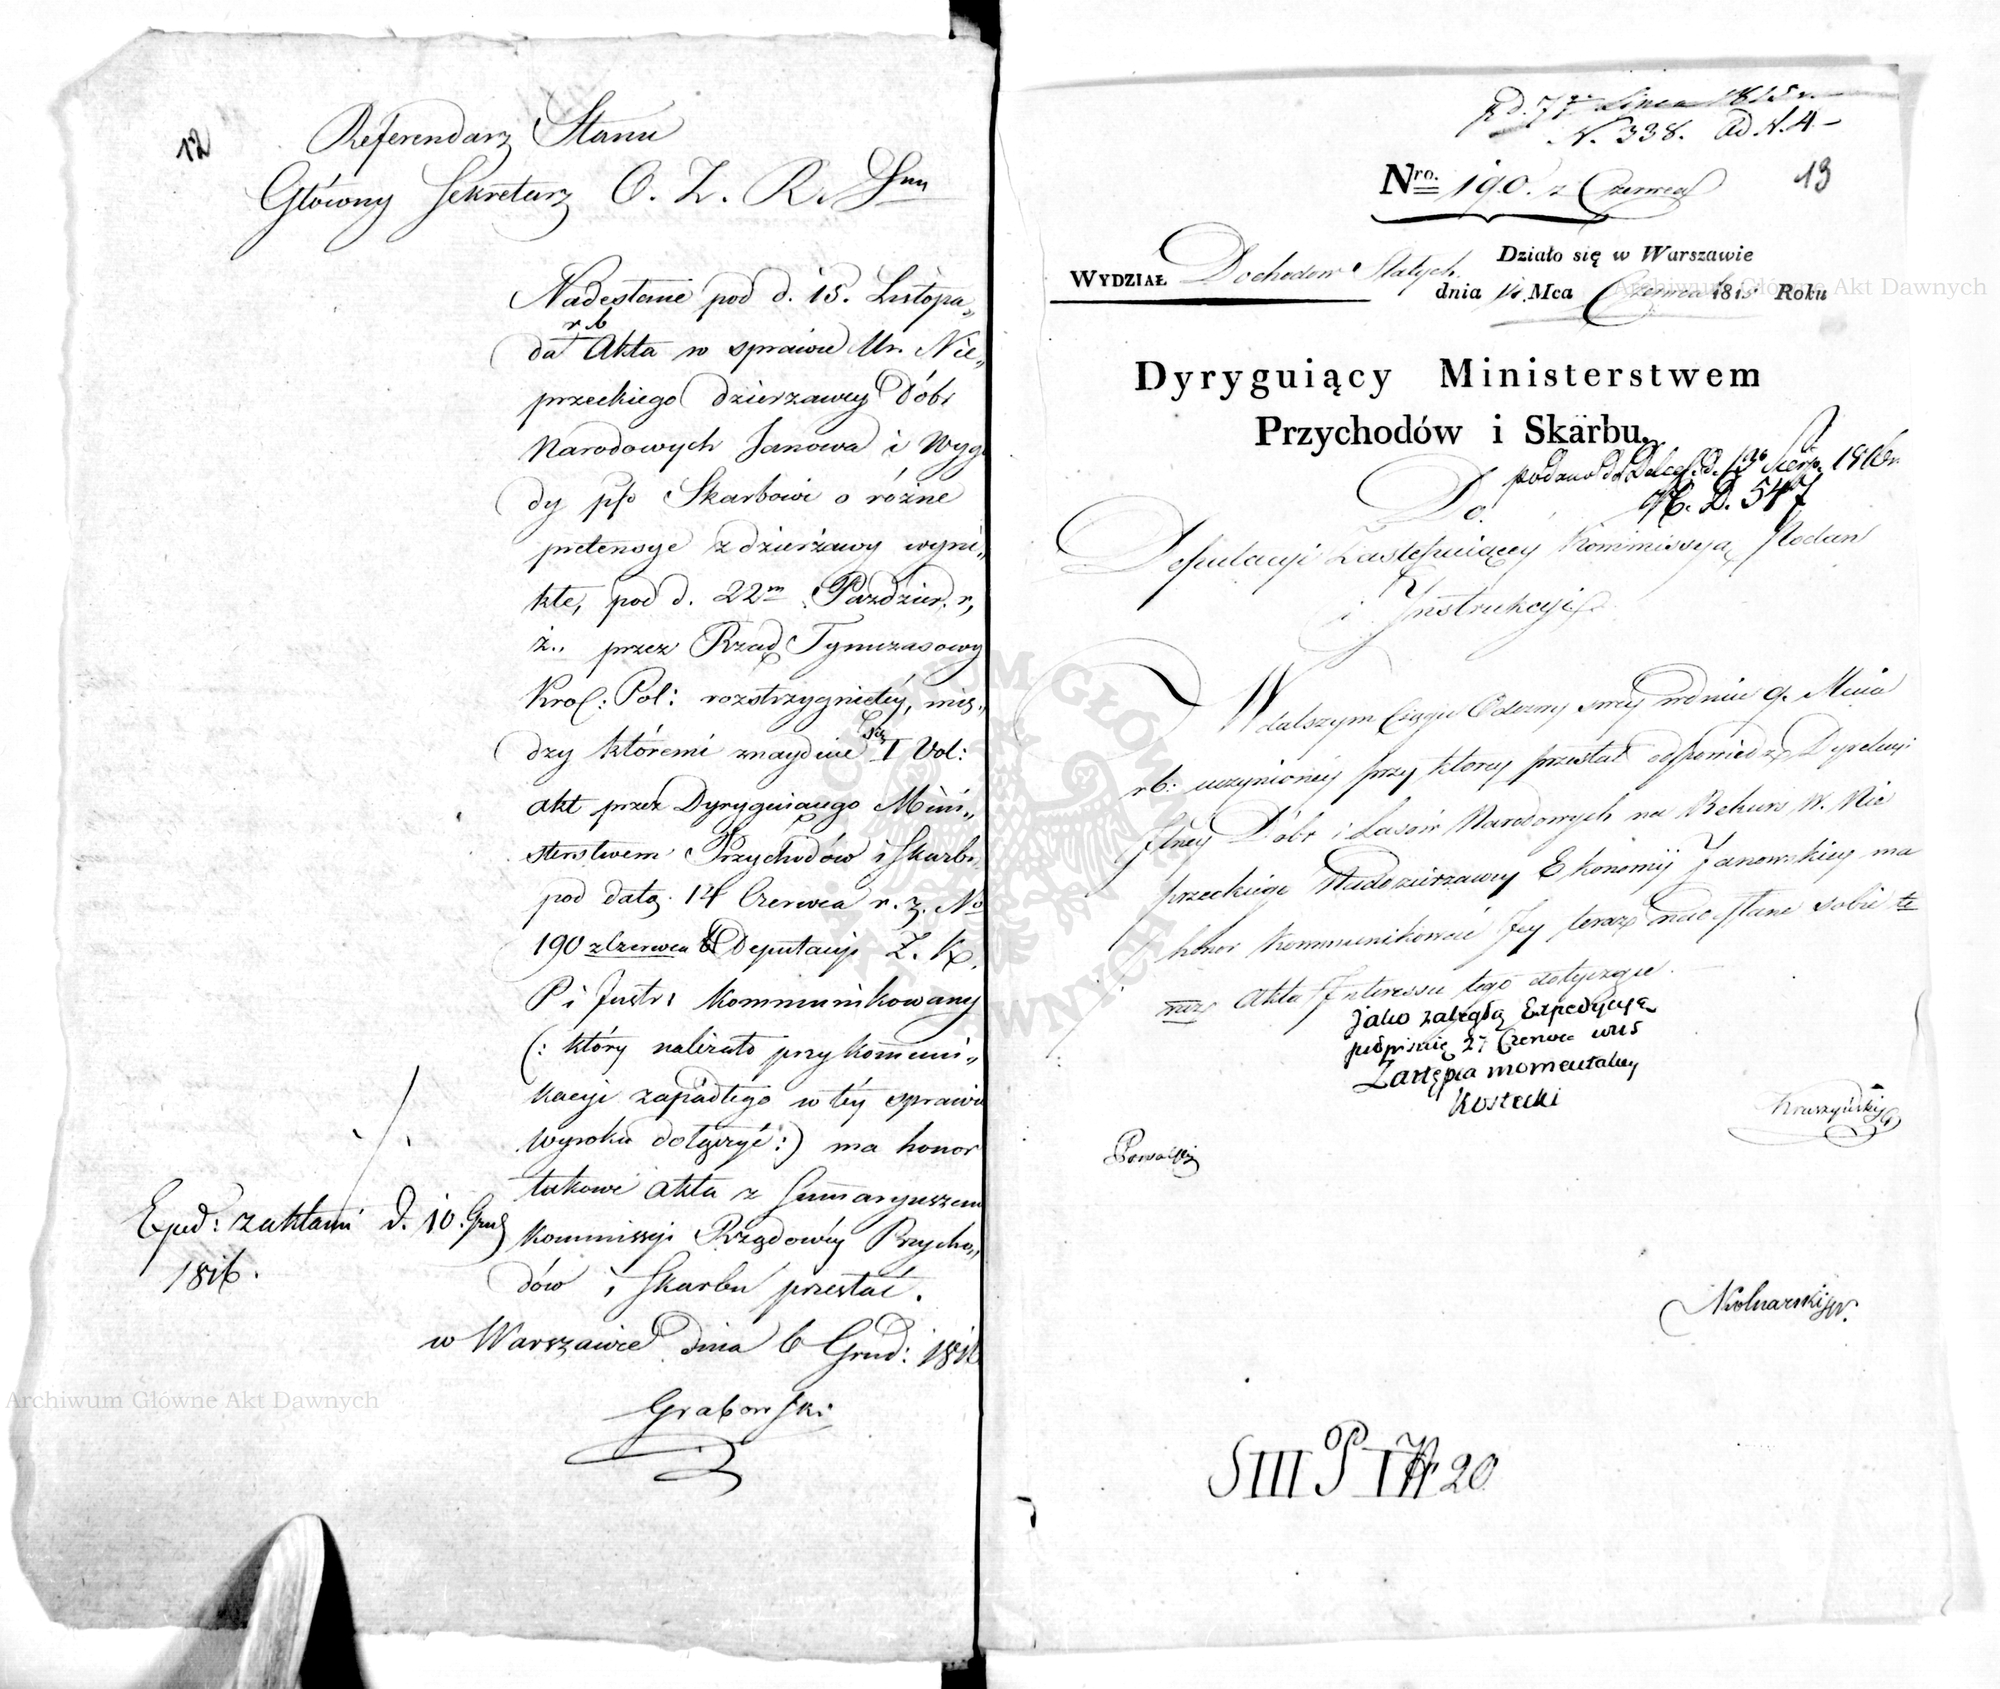 12
Referendarz Stanu
Główny Sekretarz O. Z. R. Snu
Nadesłane pod d. 15. Listopa„
r b
da Akta w sprawie Ur. Nie„
przeckiego dzierzawcy Dóbr
Narodowych Janowa i Wygo
dy pko Skarbowi o różne
pretensye z dzierżawy wyni„
kłe, pod d. 22m Pazdzier. r,
z., przez Rząd Tymczasowy
Krol: Pol: rozstrzygnietéy, mię„
dzy któremi znayduie się I Vol:
akt przez Dyryguiącego Mini„
sterstwem Przychodów i Skarbu
pod datą 14 Czerwca r. z. No
190 z Czerwca Deputacyi Z. K.
P i Instr: kommunikowany
(: który należało przy kommuni„
kacyi zapadłego w téy sprawie
wyroku dołączyć :) ma honor
takowe akta z Summaryuszem
Kommissyi Rządowéy Przycho„
dów i Skarbu przesłać.
w Warszawie dnia 6 Grud: 1816
Grabowski
Exped: z aktami d. 10. Grud
1816.
Archiwum Główne Akt Dawnych
pd. 7 Lipca 1815 r.
N. 338. ad N. 4 –
Nro. 190. z Czerwca
13
Wydział Dochodow Stałych.
Działo się w Warszawie
dnia 14. Mca Czerwca 1815 Roku
Archiwum Główne Akt Dawnych
Dyryguiący Ministerstwem
Przychodów i Skarbu.
podano do d. 13go Sierp. 1816 r.
N. D. 547
Do
Deputacyi Zastępuiącey Kommissyą Podań
i Instrukcyi
W dalszym Ciągu Odezwy swey w dniu 9. Maia
rb: uczynioney przy ktorey przesłał odpowiedz Dyrekcyi
Jlney Dobr i Lasow Narodowych na Rekurs W. Nie
przeckiego Naddzierzawcy Ekonomij Janowskiey ma
honor kommunikować Jey teraz nadesłane sobie te
raz Akta Interessu tego dotyczące.
jako zaległą Expedycyą
podpisuię 27 Czerwca 1815
Zastępca momentalny
Kostecki
Kruszyński
Nolnarski
SIII P I N 20
ARCHIWUM GŁÓWNE AKT DAWNYCH